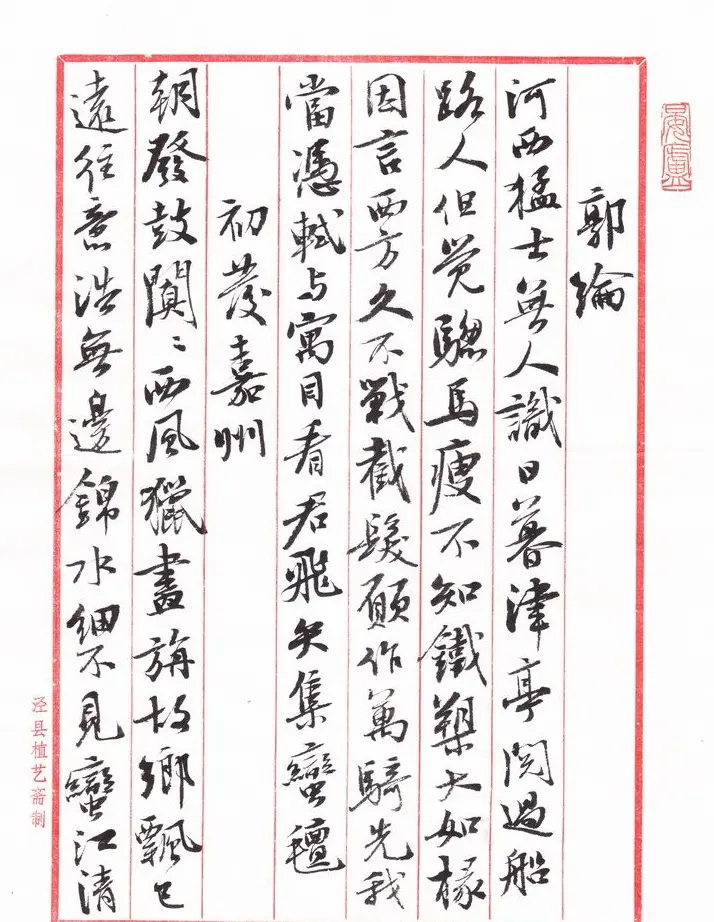 郭綸
河西猛士無人識日暮津亭閱過船
路人但覺驄馬瘦不知鐵槊大如椽
因言西方久不戰截髮願作萬騎先我
當憑軾与寓目看君飛矢集蠻氊
初發嘉州
朝發鼓闐〻西風獵畫旃故鄉飄已
遠往意浩無邊錦水細不見蠻江清
泾县植艺斋制